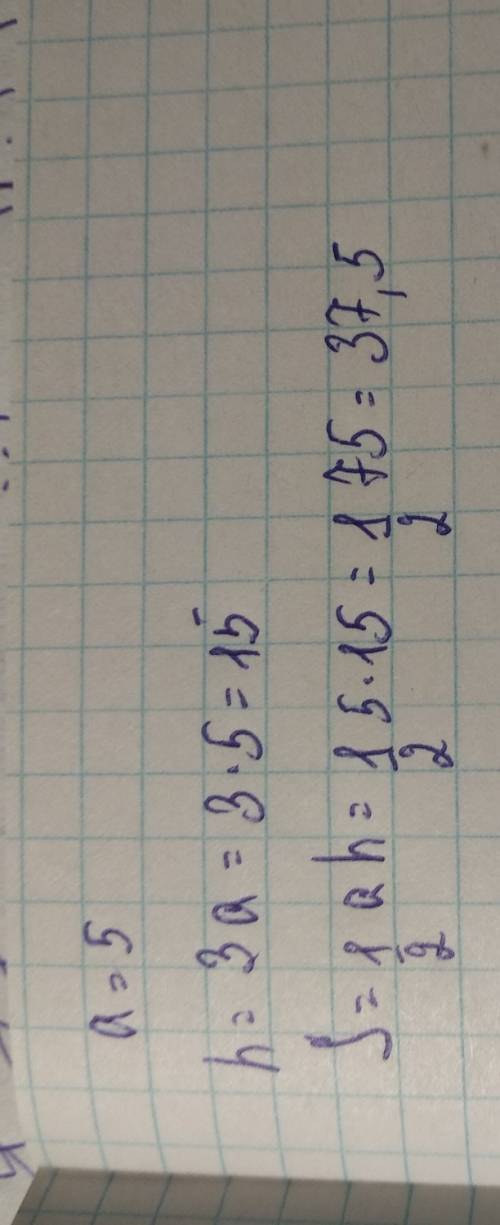 a = 5
h = 3a = 3·5 = 15
S = 1/2 a h = 1/2 5·15 = 1/2 75 = 37,5